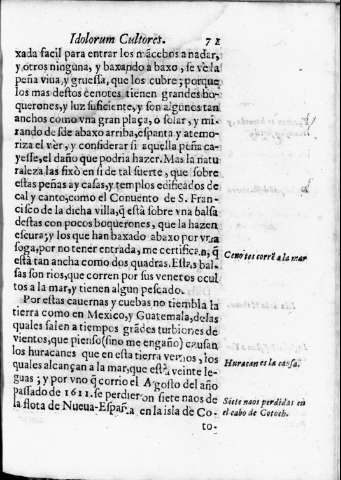 Idolorum Cultores. 71
xada facil para entrar los mãcebos a nadar,
y otros ninguna, y baxando a baxo, se ve la
peña viua, y gruessa, que los cubre; porque
los mas destos cenotes tienen grandes bo-
querones, y luz suficiente, y son algunos tan
anchos como vna gran plaça, o solar, y mi-
rando desde abaxo arriba, espanta y atemo-
riza el ver, y considerar si aquella peña ca-
yesse, el daño que podria hazer. Mas la natu
raleza las fixò en si de tal suerte, que sobre
estas peñas ay casas, y templos edificados de
cal y canto, como el Conuento de S. Fran-
cisco de la dicha villa, q̃ està sobre vna balsa
destas con pocos boquerones, que la hazen
escura; y los que han baxado abaxo por vna
soga, por no tener entrada, me certifican, q̃
està tan ancha como dos quadras. Estas bal-
sas son rios, que corren por sus veneros ocul
tos a la mar, y tienen algun pescado.
Cenotes corrẽ a la mar
Por estas cauernas y cuebas no tiembla la
tierra como en Mexico, y Guatemala, de las
quales salen a tiempos grãdes turbiones de
vientos, que pienso (sino me engaño) causan
los huracanes que en esta tierra vemos, los
quales alcançan a la mar, que està veinte le-
guas; y por vno q̃ corrio el Agosto del año
passado de 1611. se perdieron siete naos de
la flota de Nueua-España en la isla de Co-
Huracan es la causa.
Siete naos perdidas en
el cabo de Cotoch.
to-